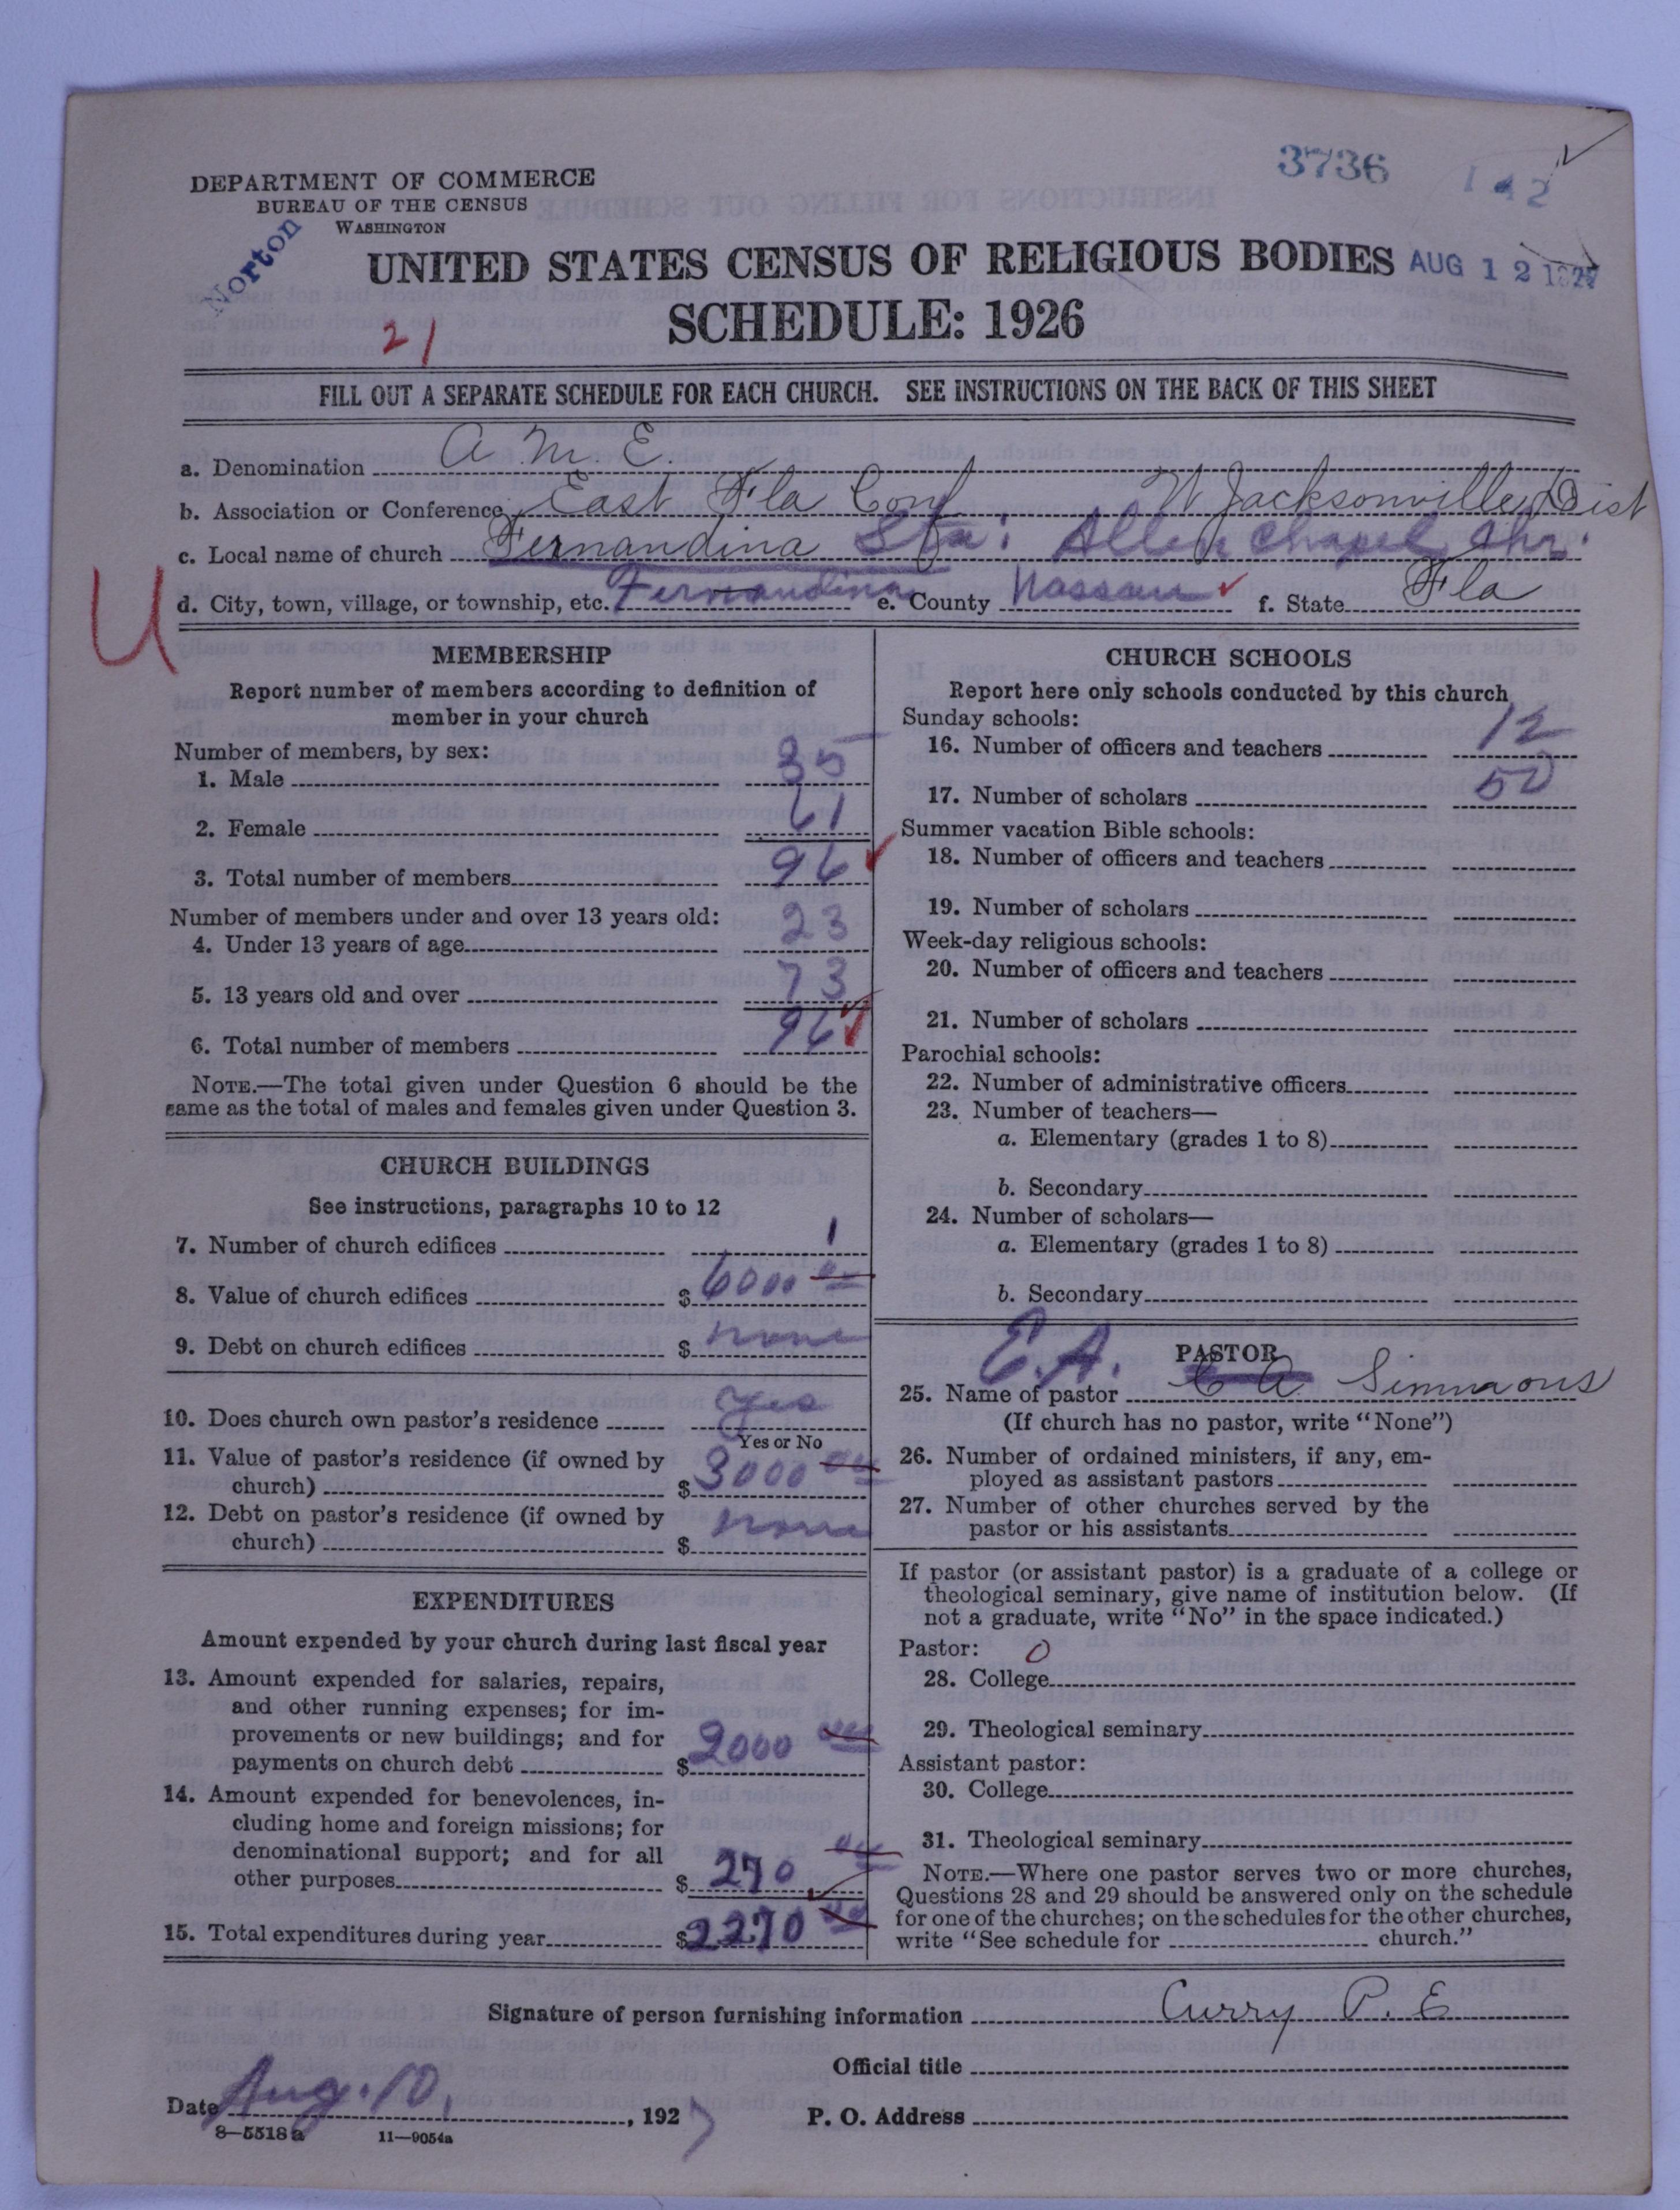 3736 142
DEPARTMENT OF COMMERCE
BUREAU OF THE CENSUS
WASHINGTON
Norton
UNITED STATES CENSUS OF RELIGIOUS BODIES AUG 12 1927
SCHEDULE: 1926
21
FILL OUT A SEPARATE SCHEDULE FOR EACH CHURCH. SEE INSTRUCTIONS ON THE BACK OF THIS SHEET
a. Denomination A M. E.
b. Association or Conference East Fla Conf W Jacksonville Dist
c. Local name of church Fernandina Sta: Allen Chapel Chr.
d. City, town, village, or township, etc. Fernandina e. County Nassau f. State Fla
U
MEMBERSHIP
Report number of members according to definition of
member in your church
Number of members, by sex:
1. Male 35
2. Female 61
3. Total number of members 96
Number of members under and over 13 years old:
4. Under 13 years of age 23
5. 13 years old and over 73
6. Total number of members 96
NOTE.—The total given under Question 6 should be the
same as the total of males and females given under Question 3.
CHURCH BUILDINGS
See instructions, paragraphs 10 to 12
7. Number of church edifices 1
8. Value of church edifices $ 6000 00
9. Debt on church edifices $ none
10. Does church own pastor's residence yes
Yes or No
11. Value of pastor's residence (if owned by
church) $ 3000 00
12. Debt on pastor's residence (if owned by
church) $ none
EXPENDITURES
Amount expended by your church during last fiscal year
13. Amount expended for salaries, repairs,
and other running expenses; for im-
provements or new buildings; and for
payments on church debt $ 2000 00
14. Amount expended for benevolences, in-
cluding home and foreign missions; for
denominational support; and for all
other purposes $ 270 00
15. Total expenditures during year $ 2270 00
CHURCH SCHOOLS
Report here only schools conducted by this church
Sunday schools:
16. Number of officers and teachers 12
17. Number of scholars 50
Summer vacation Bible schools:
18. Number of officers and teachers
19. Number of scholars
Week-day religious schools:
20. Number of officers and teachers
21. Number of scholars
Parochial schools:
22. Number of administrative officers
23. Number of teachers—
a. Elementary (grades 1 to 8)
b. Secondary
24. Number of scholars—
a. Elementary (grades 1 to 8)
b. Secondary
E.A. PASTOR
25. Name of pastor C A Simmons
(If church has no pastor, write "None")
26. Number of ordained ministers, if any, em-
ployed as assistant pastors
27. Number of other churches served by the
pastor or his assistants
If pastor (or assistant pastor) is a graduate of a college or
theological seminary, give name of institution below. (If
not a graduate, write "No" in the space indicated.)
Pastor: 0
28. College
29. Theological seminary
Assistant pastor:
30. College
31. Theological seminary
NOTE.—Where one pastor serves two or more churches,
Questions 28 and 29 should be answered only on the schedule
for one of the churches; on the schedules for the other churches,
write "See schedule for church."
Signature of person furnishing information Curry P. E
Official title
Date Aug. 10, , 1927 P. O. Address
8—5518 a 11—9054a